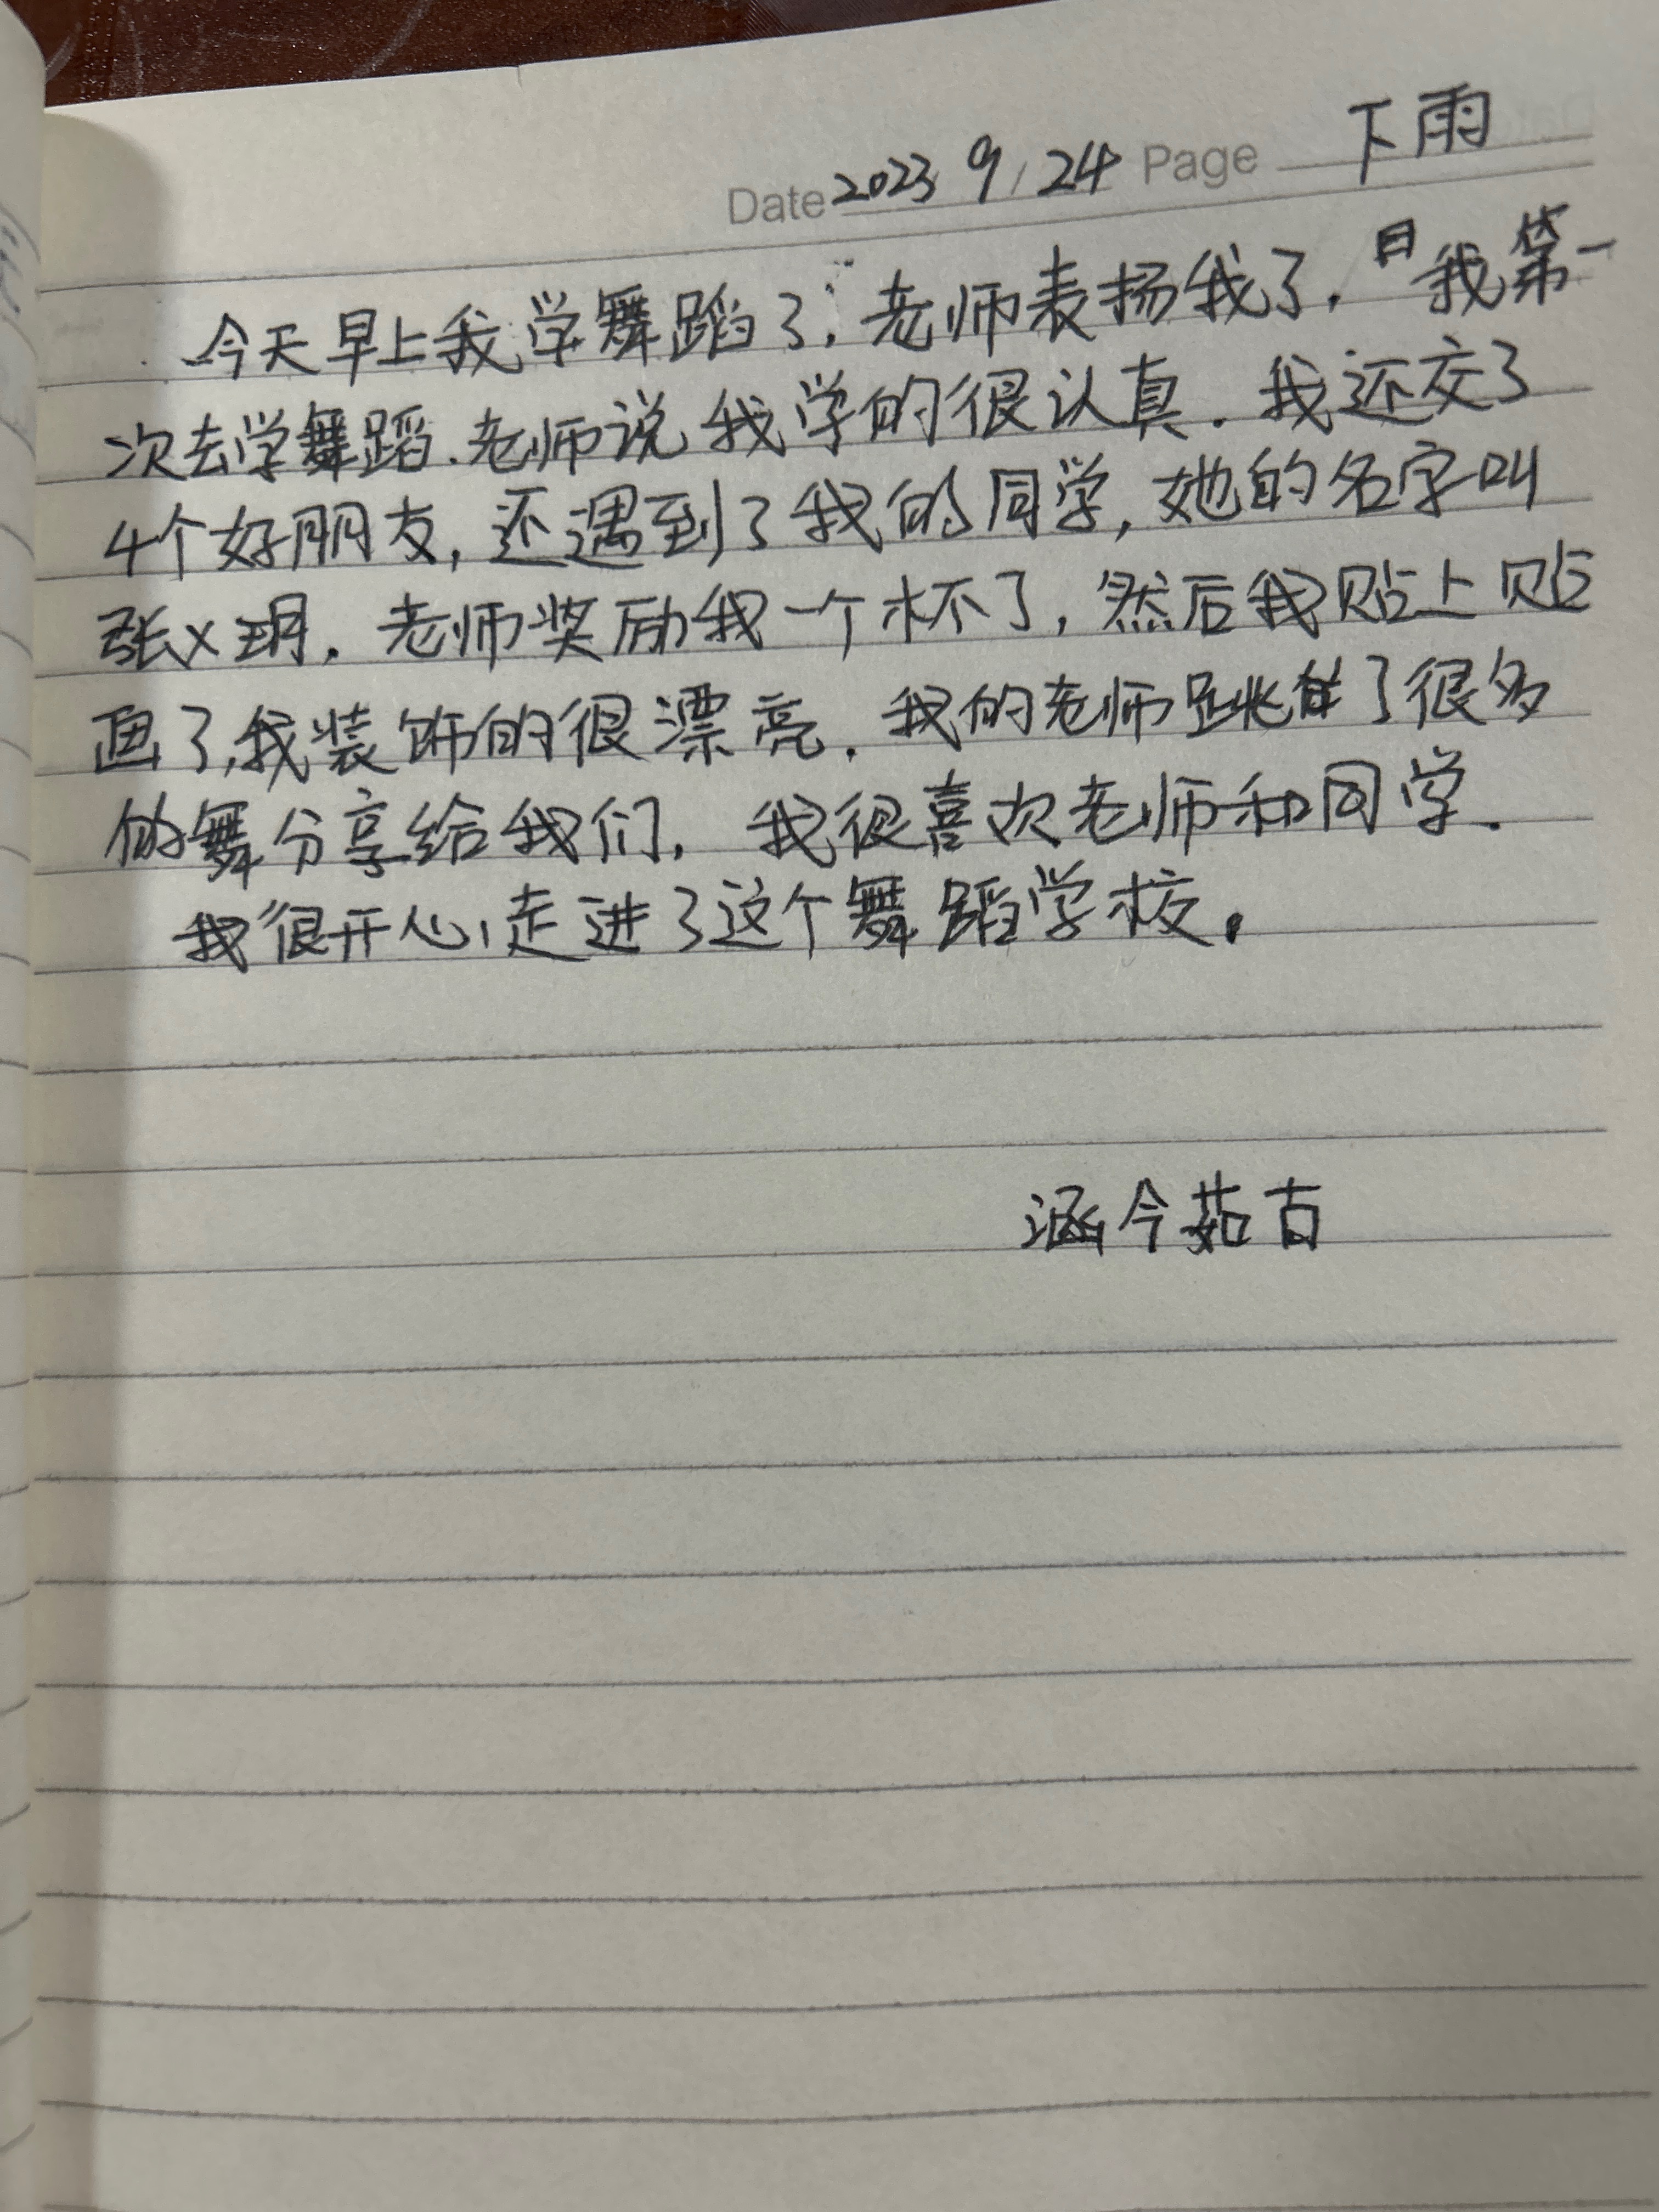 Date 2023 9 / 24 Page 下雨
今天早上我学舞蹈了,老师表扬我了,我第一
次去学舞蹈.老师说我学的很认真.我还交了
4个好朋友,还遇到了我的同学,她的名字叫
张义玥.老师奖励我一个杯了,然后我贴上贴
画了,我装饰的很漂亮.我的老师跳了很多
的舞分享给我们,我很喜欢老师和同学.
我很开心,走进了这个舞蹈学校。
涵今茹古